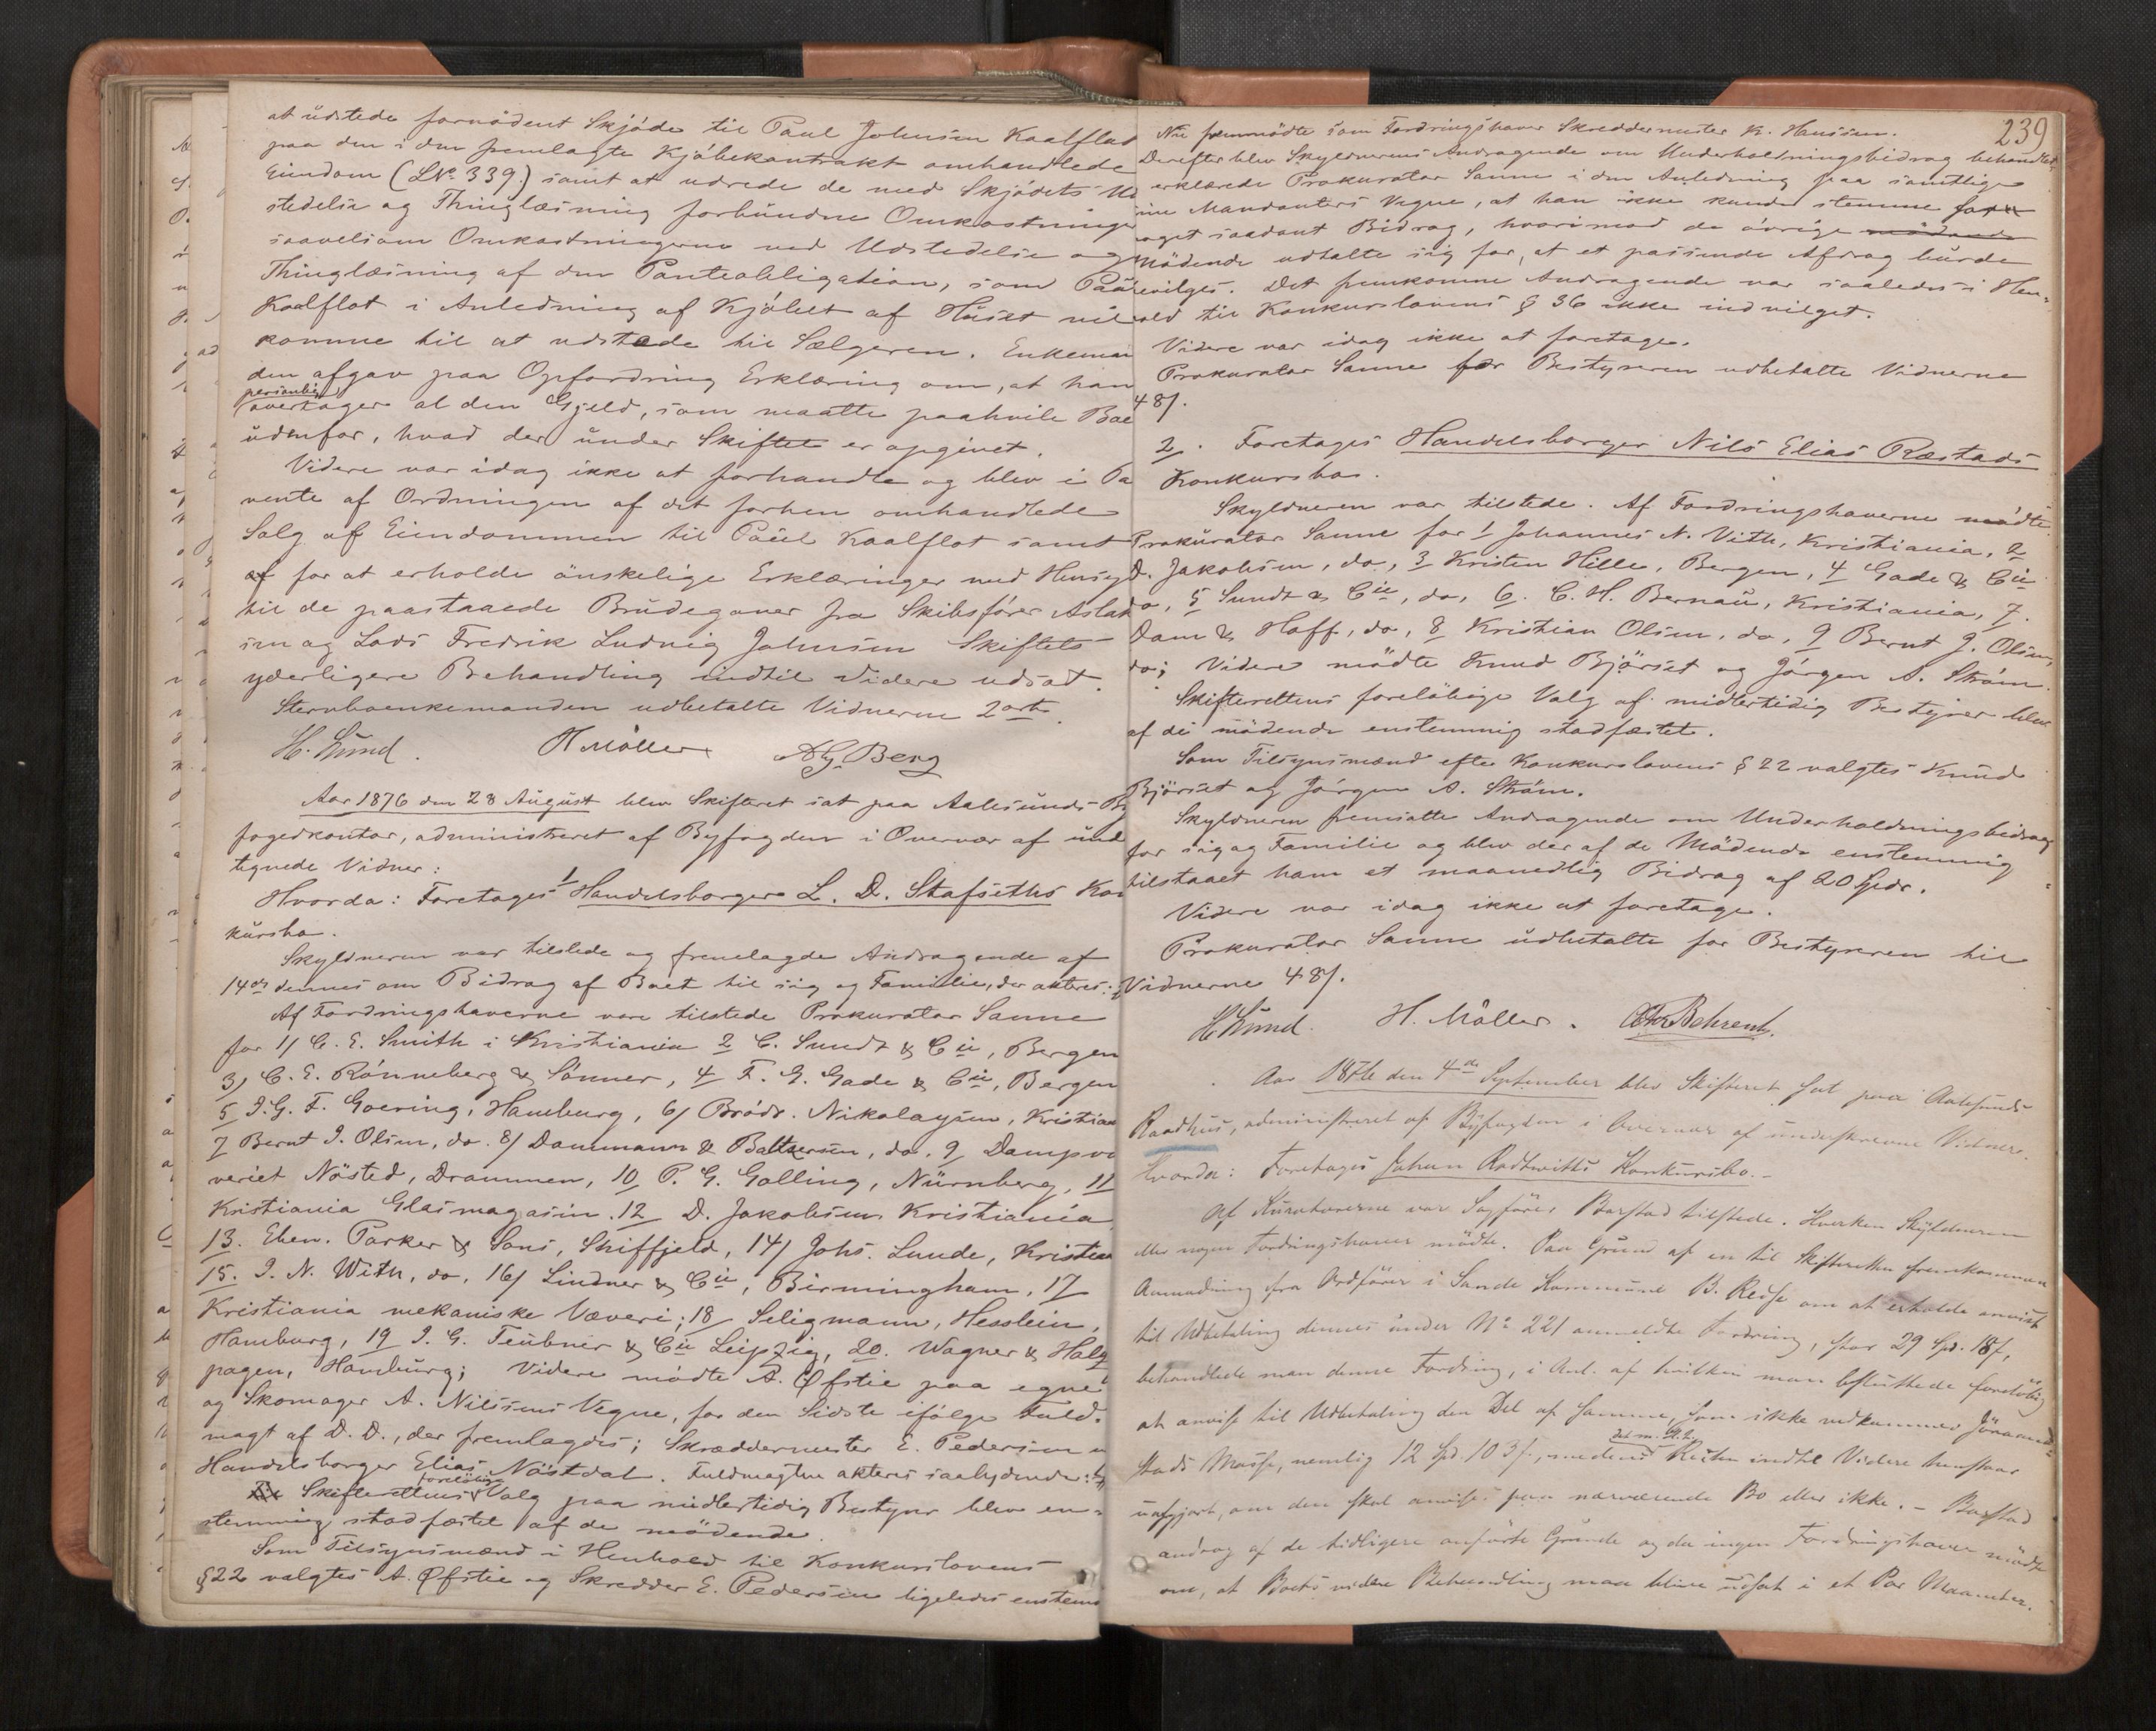 at udstede fornödent Skjöde til Paul Johnsen Kaalflot
paa den i den fremlagte Kjöbekontrakt omhandlede
Eiendom (LNr 339) samt at udrede de med Skjödets Ud
stedelse og Thinglæsning forbundne Omkostninger
saavelsom Omkostningerne ved Udstedelse og
Thinglæsning af den Panteobligation, som Paul
Kaalflot i Anledning af Kjöbet af Huset vil
komme til at udstede til Sælgeren. Enkeman
den afgav paa Opfordring Erklæring om, at han
personlig
overtager al den Gjeld, som maatte paahvile Boe
udenfor, hvad der under Skiftet er opgivet.
Videre var idag ikke at forhandle og blev i Pa
vente af Ordningen af det forhen omhandlede
Salg af Eiendommen til Paul Kaalflot samt
af for at erholde önskelige Erklæringer med Hensyn
til de paastaaede Brudegaver fra Skibsförer Aslak
sen og Lods Fredrik Ludvig Johnsen Skiftets
yderligere Behandling indtil Videre udsat.
Stervboenkemanden udbetalte Vidnerne 2 ort.
H. Lund. H Möller A Berg
Aar 1876 den 28 August blev Skifteret sat paa Aalesunds By
fogedkontor, administreret af Byfogden i Overvær af und
tegnede Vidner:
Hvorda: Foretages 1/ Handelsborger L. D. Stafseths Kon
kursbo.
Skyldneren var tilstede og fremlagde Andragende af
14de dennes om Bidrag af Boet til sig og Familie, der akteres:
Af Fordringshaverne vare tilstede Prokurator Sanne
for 1/ C. E. Smith i Kristiania 2 C. Sundt & Cie, Bergen
3) C. E. Rönneberg & Sönner, 4 F. G. Gade & Cie, Bergen
5 I. G. F. Goering, Hamburg, 6/ Brödr. Nikolaysen, Kristian
7 Bernt I. Olsen, do. 8/ Dammann & Baltzersen, do, 9 Dampvæ
veriet Nösted, Drammen, 10 P. G. Golling, Nürnberg, 11
Kristiania Glasmagasin. 12 D. Jakobsen Kristiania
13. Eben. Parker & Sons, Shiffjeld, 14/ Johs. Lunde, Kristian
15. I. N. With, do, 16/ Lindner & Cie, Birmingham, 17
Kristiania mekaniske Væveri; 18 Seligmann, Hesslein,
Hamburg, 19 I. G. Teubner & Cie Leipzig, 20. Wagner & Halg
pagen, Hamburg; Videre mödte A. Øfstie paa egne
og Skomager A. Nilssens Vegne, for den Sidste ifölge Fuld-
magt af D. D., der fremlagdes; Skræddermester E. Pedersen
Handelsborger Elias Nöstdal. Fuldmagten akteres saalydende:
foreløbige
Skifterettens Valg paa midlertidig Bestyrer blev en-
stemmig stadfæstet af de mödende.
Som Tilsynsmænd i Henhold til Konkurslovens
§22 valgtes A. Øfstie og Skredder E. Pedersen ligeledes enstem
239
Nu fremmödte som Fordringshaver Skreddermester K. Hanssen.
Derefter blev Skyldnerens Andragende om Underholdningsbidrag behandlet
erklærede Prokurator Sanne i den Anledning paa samtlige
sine Mandanters Vegne, at han ikke kunde stemme for
noget saadant Bidrag, hvorimod de övrige mödende
Mödende udtalte sig for, at et passende Afdrag burde
bevilges. Det fremkomne Andragende var saaledes i Hen-
hold til Konkurslovens § 36 ikke indvilget.
Videre var idag ikke at foretage.
Prokurator Sanne for Bestyreren udbetalte Vidnerne
48/.
2. Foretages Handelsborger Nils Elias Ræstads
Konkursbo.
Skyldneren var tilstede. Af Fordringshaverne mödte
Prokurator Sanne for 1 Johannes N. Vith, Kristiania, 2
D. Jakobsen, do, 3 Kristen Hille, Bergen, 4 Gade & Cie
do, 5 Sundt & Cie, do, 6. C. H. Bernau, Kristiania, 7.
Dam & Hoff, do, 8 Kristian Olsen, do, 9 Bernt J. Olsen,
do; Videre mödte Knud Björset og Jörgen A. Ström.
Skifterettens foreløbige Valg af midlertidig Bestyrer blev
af de mödende enstemmig stadfæstet.
Som Tilsynsmænd efter Konkurslovens § 22 valgtes Knud
Björset og Jörgen A. Ström.
Skyldneren fremsatte Andragende om Underholdningsbidrag
for sig og Familie og blev der af de Mödende enstemmig
tilstaaet ham et maanedlig Bidrag af 20 Spdr.
Videre var idag ikke at foretage.
Prokurator Sanne udbetalte for Bestyreren til
Vidnerne 48/.
H Lund. H. Möller. Behrent.
Aar 1876 den 4de September blev Skifteret sat paa Aalesunds
Raadhus, administreret af Byfogden i Overvær af underskrevne Vidner.
Hvorda: Foretages Johan Rodtwitts Konkursbo.
Af Kuratorerne var Sagfører Barstad tilstede. Hverken Skyldneren
eller nogen Fordringshaver mödte. Paa Grund af en til Skifteretten fremkommen
Anmodning fra Ordfører i Sande Kommune B. Reise om at erholde anvist
til Udbetaling dennes under No 221 anmeldte Fordring, stor 29 Spd. 18/,
behandlede man denne Fordring, i Anl. af hvilken man besluttede foreløbig
at anvise til Udbetaling den Del af samme, som ikke vedkommer
stads Masse, nemlig 12 Spd. 103/, medens Resten indtil Videre henstaar
uafgjort, om den skal anvises paa nærværende Bo eller ikke. - Barstad
androg af de tidligere anförte Grunde og da ingen Fordringshaver mödte
om, at Boets videre Behandling maa blive udsat i et Par Maaneder.